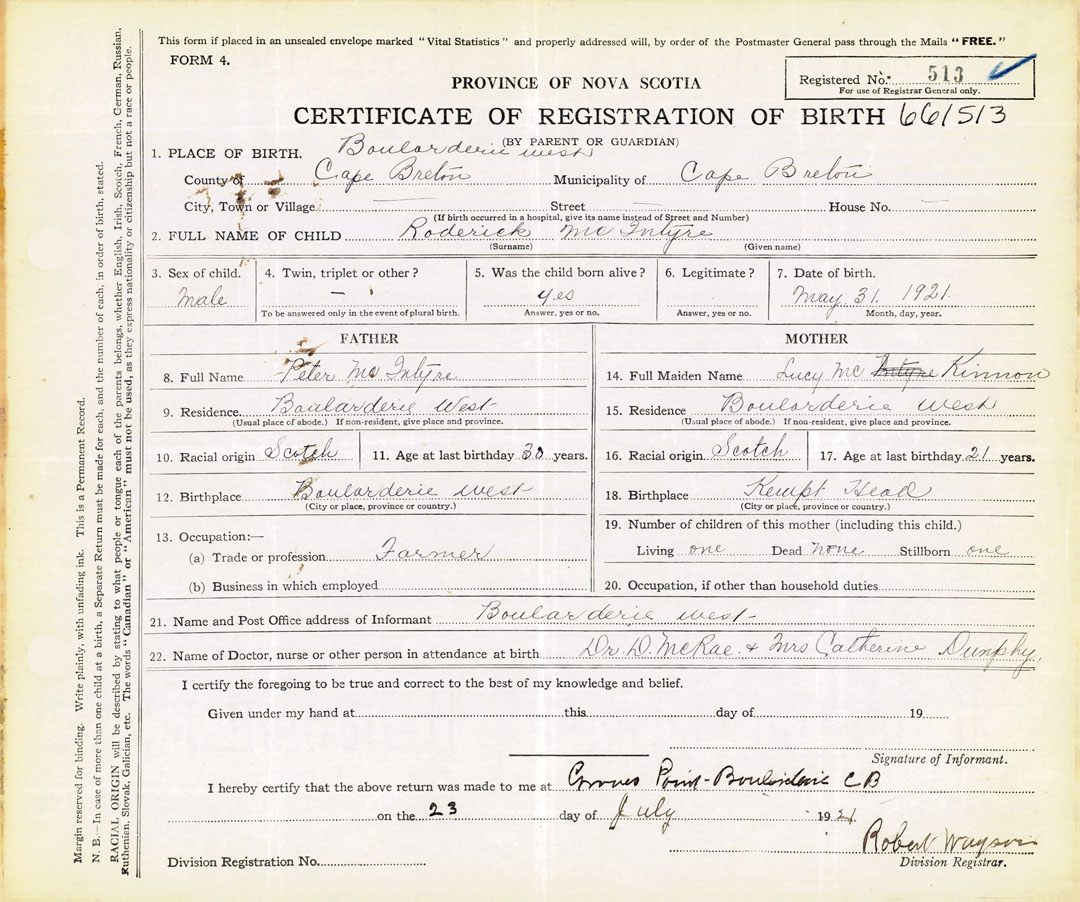 This form if placed in an unsealed envelope marked "Vital Statistics" and properly addressed will, by order of the Postmaster General pass through the Mails "FREE."
FORM 4.
Registered No. 513
For use of Registrar General only.
PROVINCE OF NOVA SCOTIA
CERTIFICATE OF REGISTRATION OF BIRTH 661513
(BY PARENT OR GUARDIAN)
1. PLACE OF BIRTH. Boularderie west
County of Cape Breton Municipality of Cape Breton
City, Town or Village — Street — House No. —
(If birth occurred in a hospital, give its name instead of Street and Number)
2. FULL NAME OF CHILD Roderick Mc Intyre
(Surname) (Given name)
3. Sex of child. 4. Twin, triplet or other? 5. Was the child born alive? 6. Legitimate? 7. Date of birth.
Male — yes May 31. 1921.
To be answered only in the event of plural birth. Answer, yes or no. Answer, yes or no. Month, day, year.
FATHER
8. Full Name Peter Mc Intyre
9. Residence. Boularderie West
(Usual place of abode.) If non-resident, give place and province.
10. Racial origin Scotch 11. Age at last birthday 30 years.
12. Birthplace Boularderie west
(City or place, province or country.)
13. Occupation:—
(a) Trade or profession Farmer
(b) Business in which employed
MOTHER
14. Full Maiden Name Lucy Mc Intyre Kinnon
15. Residence Boularderie west
(Usual place of abode.) If non-resident, give place and province.
16. Racial origin Scotch 17. Age at last birthday 21 years.
18. Birthplace Kempt Head
(City or place, province or country.)
19. Number of children of this mother (including this child.)
Living one Dead none Stillborn one
20. Occupation, if other than household duties
21. Name and Post Office address of Informant Boularderie west
22. Name of Doctor, nurse or other person in attendance at birth Dr. D. McRae & Mrs Catherine Dunphy.
I certify the foregoing to be true and correct to the best of my knowledge and belief.
Given under my hand at this day of 19
Signature of Informant.
I hereby certify that the above return was made to me at Groves Point-Boularderie C B
on the 23 day of July 1921
Robert
Division Registrar.
Division Registration No.
Margin reserved for binding. Write plainly, with unfading ink. This is a Permanent Record.
N. B.—In case of more than one child at a birth, a Separate Return must be made for each, and the number of each, in order of birth, stated.
RACIAL ORIGIN will be described by stating to what people or tongue each of the parents belongs, whether English, Irish, Scotch, French, German, Russian,
Ruthenian, Slovak, Galician, etc. The words "Canadian" or "American" must not be used, as they express nationality or citizenship but not a race or people.